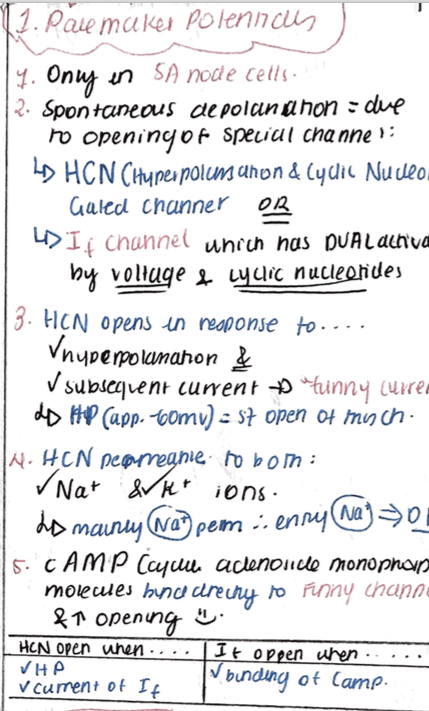 1. Pacemaker Potentials
1. Only in SA node cells.
2. Spontaneous depolarization = due
to opening of special channel:
↳ HCN (Hyperpolarisation & Cyclic Nucleo
Gated channel OR
↳ If channel which has DUAL activa
by voltage & cyclic nucleotides
3. HCN opens in response to....
✓ hyperpolarisation &
✓ subsequent current → "funny curre
↳ HP (app. -60mv) = st open of this ch.
4. HCN permeable to both:
✓ Na+ & ✓ K+ ions.
↳ mainly Na+ perm ∴ entry Na+ ⇒
5. cAMP (cyclic adenosine monophosp
molecules bind directly to Funny chann
& ↑ opening
HCN open when.... | If open when.....
✓ HP | ✓ binding of Camp.
✓ current of If